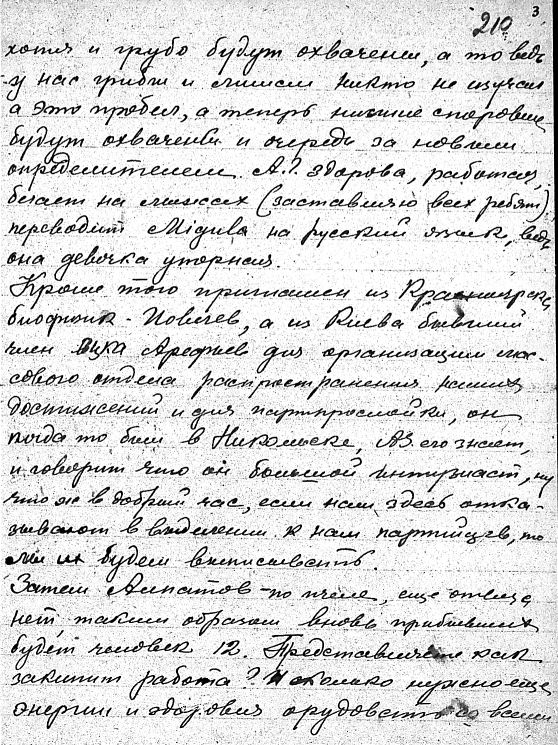 3
210
хотя и грубо будут охвачены, а то ведь
у нас грибы и лишаи никто не изучал
а это пробел, а теперь низшие споровые
будут охвачены и очередь за новым
определителем. А.? здорова, работает,
бегает на лыжах (заставляю всех ребят)
переводит Migula на русский язык, ведь
она девочка упорная.
Кроме того приглашен из Красноярска
биофизик - , а из Киева бывший
член Вцка Арефьев для организации мас-
сового отдела распространения наших
достижений и для партпрослойки, он
когда то был в Никольске, АЗ его знает,
и говорит что он большой интузиаст, ну
что ж в добрый час, если нам здесь отка-
зывают в выделении к нам партийцев, то
мы их будем выписывать.
Затем Алпатов - по пчеле, еще ответа
нет таким образом вновь прибывших
будет человек 12. Представляете как
закипит работа? И сколько нужно еще
энергии и здоровия орудовать со всеми